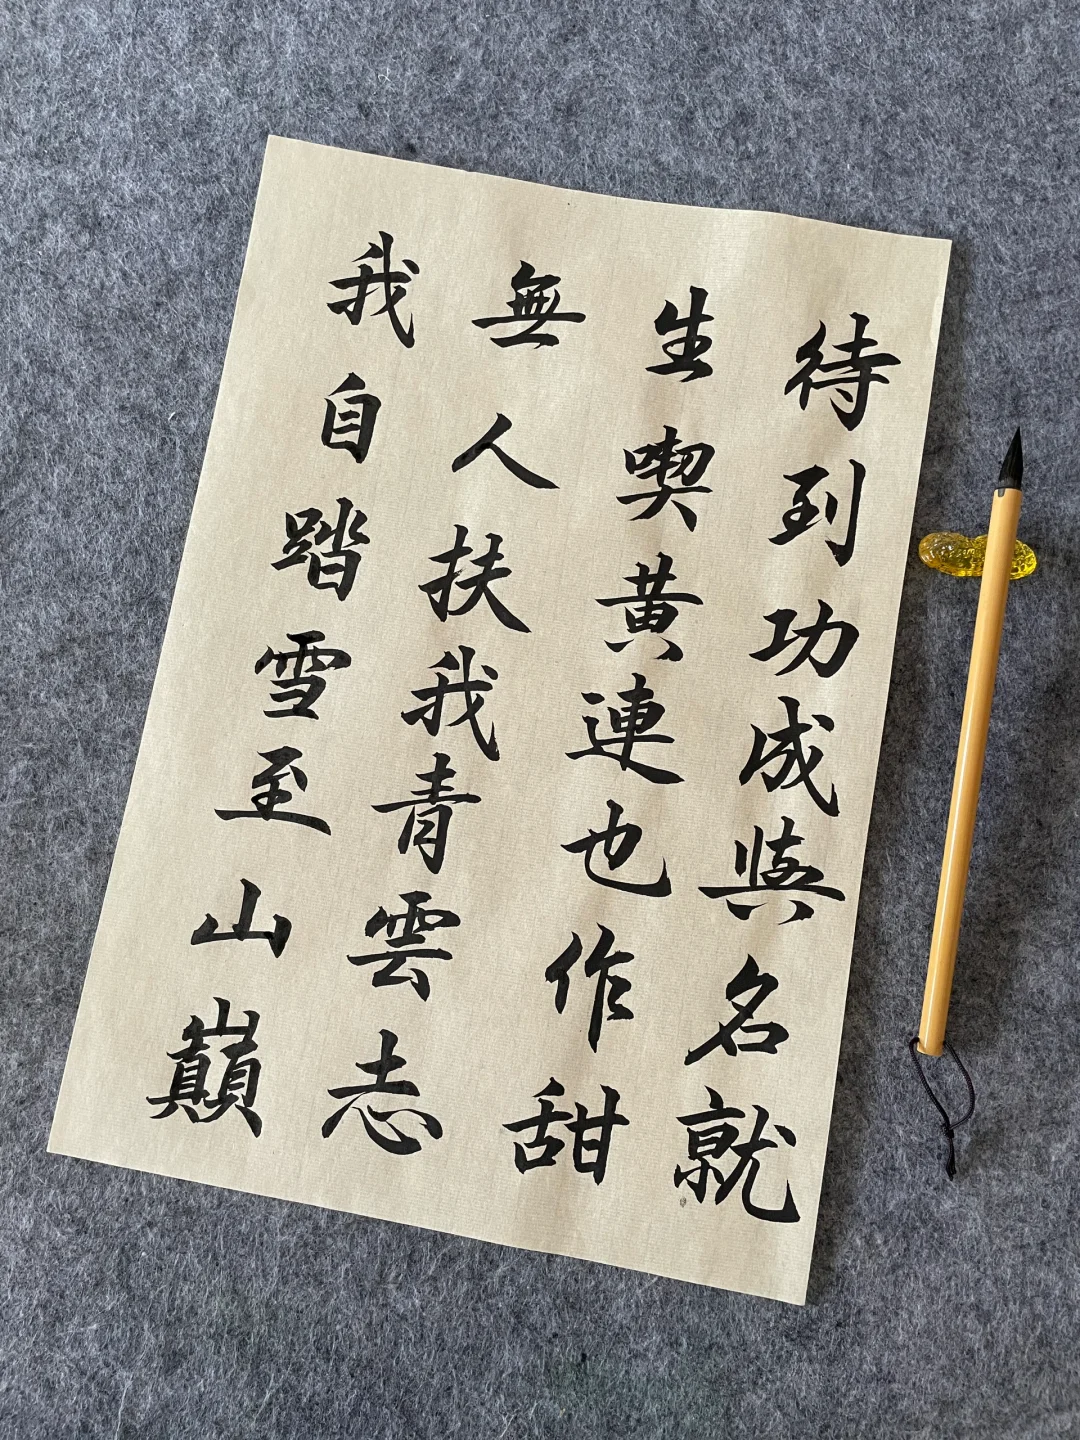 待到功成與名就
生喫黄連也作甜
無人扶我青雲志
我自踏雪至山巔